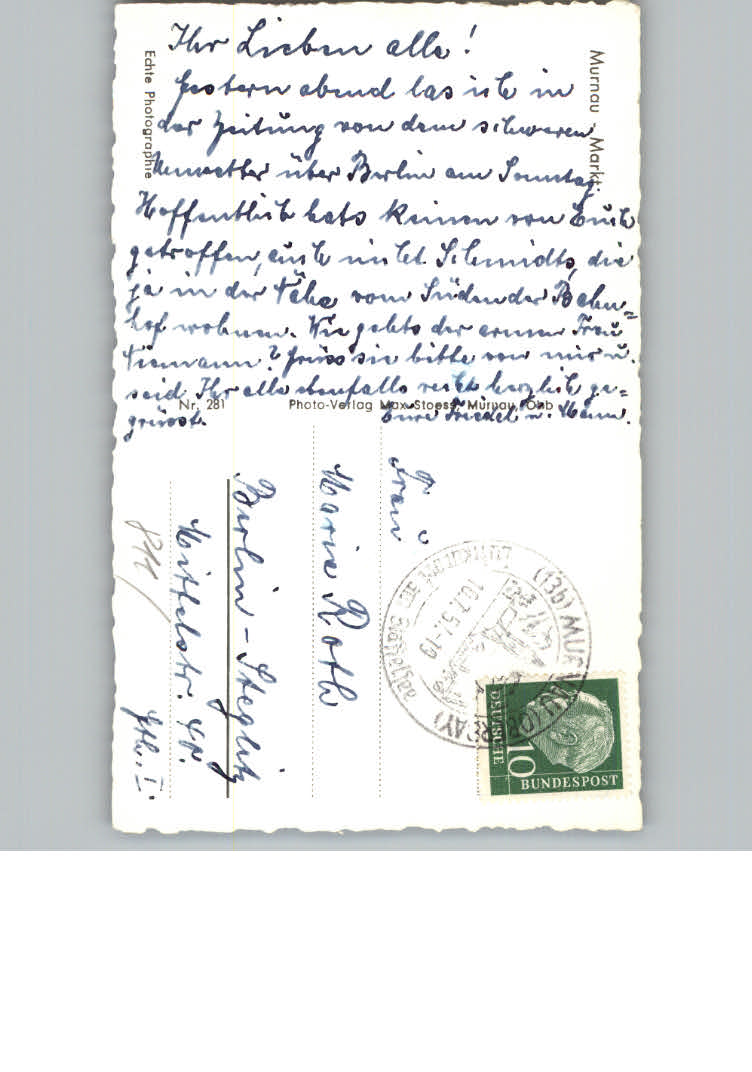 Ihr Lieben alle!
Gestern abend las ich in
der Zeitung von dem schweren
Unwetter über Berlin am Sonntag.
Hoffentlich hats keinen von Euch
getroffen, auch nicht Schmidts, die
ja in der Nähe vom Südender Bahn=
hof wohnen. Wie gehts der armen Frau
Niemann? Grüss sie bitte von mir u.
seid Ihr alle ebenfalls recht herzlich ge=
grüsst. Eure Friedel u.
Murnau - Markt
Echte Photographie
Nr. 281
Photo-Verlag Max Stoess, Murnau, Obb
Frau
Maria Roth
Berlin-Steglitz
Mittelstr.
Gth. I.
(13b) MURNAU (OBERBAY)
Luftkurort am Staffelsee
10.7.57.-19
DEUTSCHE
BUNDESPOST
10